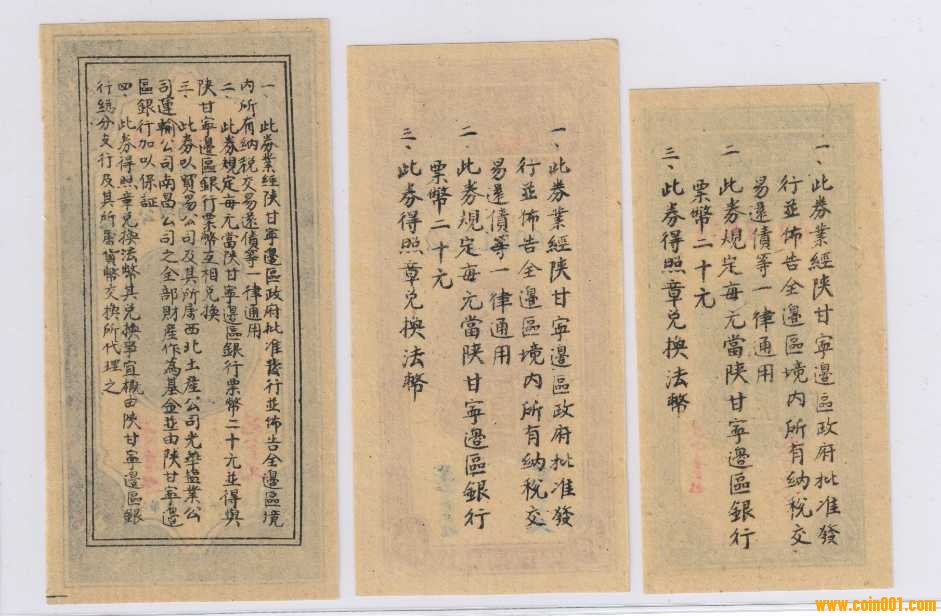 一、此券業經陕甘寧邊區政府批准發行並佈告全邊區境
内所有納税交易還債等一律通用
二、此券規定每元當陕甘寧邊區銀行票幣二十元並得與
陕甘寧邊區銀行票幣互相兑換
三、此券以貿易公司及其所屬西北土產公司光華盬業公
司運輸公司南昌公司之全部財產作為基金並由陕甘寧邊
區銀行加以保証
四、此券得照章兑換法幣其兑換事宜概由陕甘寧邊區銀
行總分支行及其所屬貨幣交換所代理之
一、此券業經陕甘寧邊區政府批准發
行並佈告全邊區境内所有納税交
易還債等一律通用
二、此券規定每元當陕甘寧邊區銀行
票幣二十元
三、此券得照章兑換法幣
一、此券業經陕甘寧邊區政府批准發
行並佈告全邊區境内所有納税交
易還債等一律通用
二、此券規定每元當陕甘寧邊區銀行
票幣二十元
三、此券得照章兑換法幣
www.coin001.com